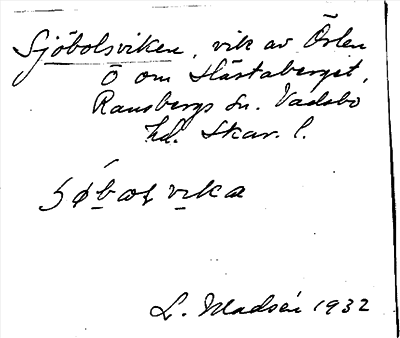 Sjöbolsviken, vik av Örlen
Ö om Hästaberget,
Ransbergs sn. Vadsbo
hd. Skar. l.
L. Madsén 1932